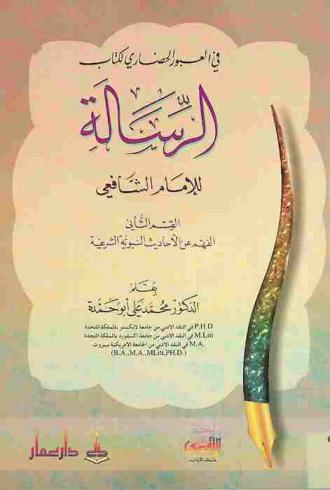 في العبور الحضاري لكتاب
الرِّسَالَة
للإمام الشافعي
القسم الثاني
الفهم عن الأحاديث النبوية الشريفة
بقلم
الدكتور محمد علي أبو حمدة
P.H.D في النقد الأدبي من جامعة لانكستر بالمملكة المتحدة
M.Litt في النقد الأدبي من جامعة اكسفورد بالمملكة المتحدة
M.A. في النقد الأدبي من الجامعة الأمريكية ببيروت
(B.A., M.A., MLitt, PH.D.)
دار عمار